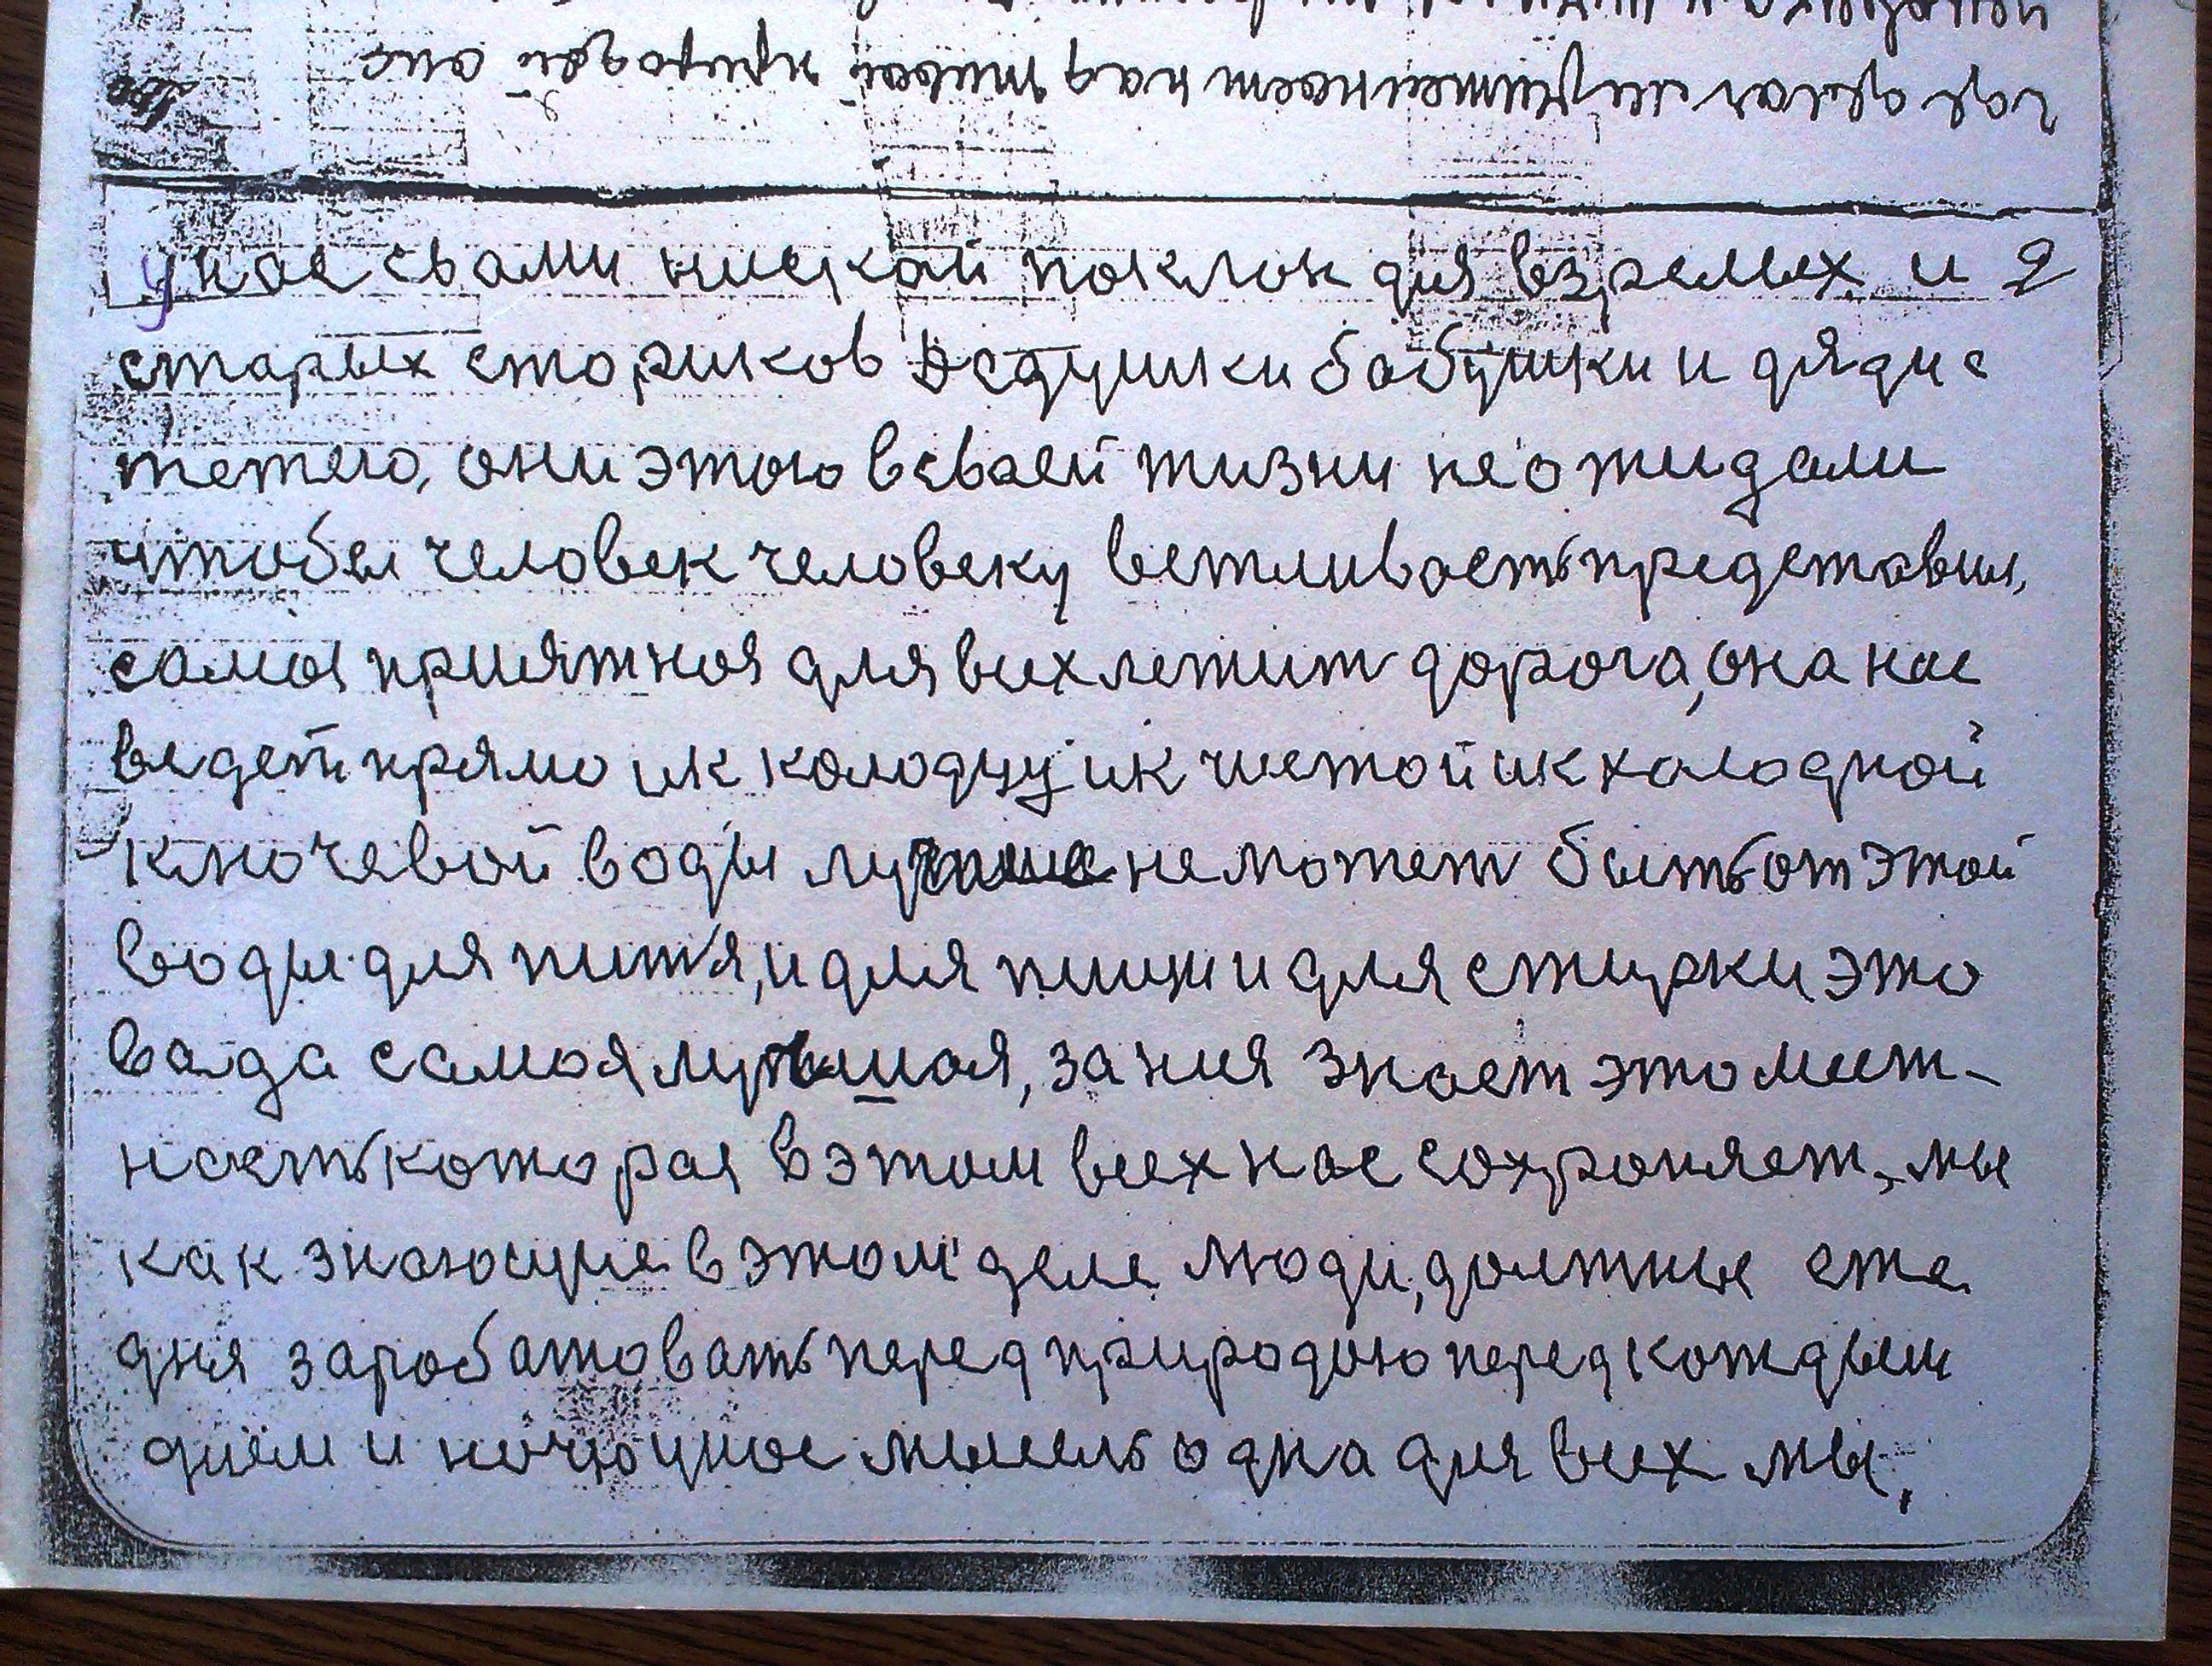 у нас свами ниский поклон для взрелых и 2
старых стариков дедушки бабушки и дяди с
тетею, они этого в сваей жизни не ожидали
чтобы человек человеку ветливость представил,
самая приятная для вих лежит дорога, она нас
ведет прямо ик колодцу ик чистой ик халодной
ключевой воды лучше не может быть от этой
воды для питья, и для пищи и для стирки это
вада самая лучьшая, за ния знает это мест-
насть которая в этом всех нас сохраняет, мы
как знающие в этом деле люди, должные еже
дня заробатовать перед природою перед кождым
днем и ночю у нас мысель одна для всех мы,